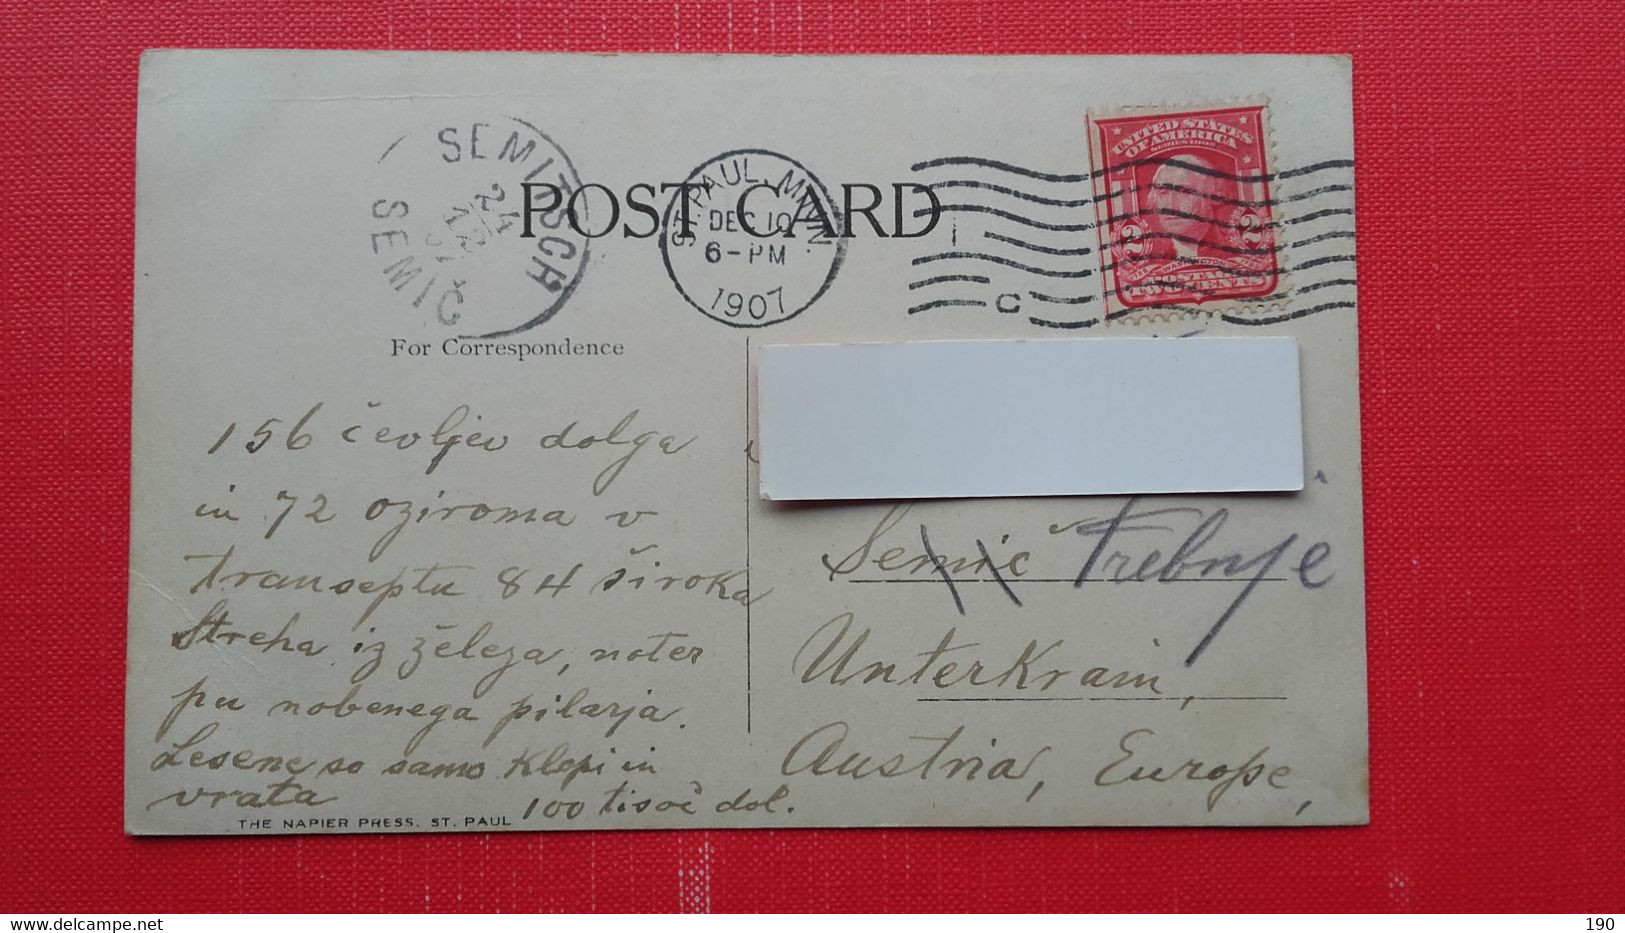 SEMITSCH
24
12
SEMIČ
POST CARD
ST. PAUL, MINN.
DEC 10
6-PM
1907
C
UNITED STATES
OF AMERICA
SERIES 1902
2 2
WASHINGTON
POSTAGE
TWO CENTS
For Correspondence
156 čevljev dolga
in 72 oziroma v
transeptu 84 široka
Streha iz železa, noter
pa nobenega pilarja.
Lesene so samo klopi in
vrata 100 tisoč dol.
THE NAPIER PRESS. ST. PAUL
Semič Trebnje
Unterkrain,
Austria, Europe,
190